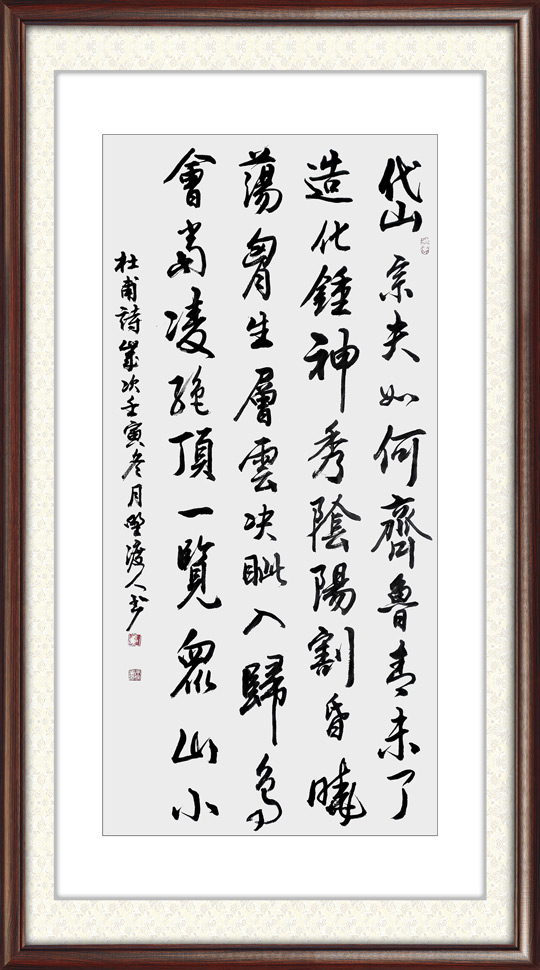 岱宗夫如何齊魯青未了
造化鍾神秀陰陽割昏曉
蕩胷生層雲決眦入歸鳥
會當凌絕頂一覽眾山小
杜甫詩歲次壬寅冬月野渡人書